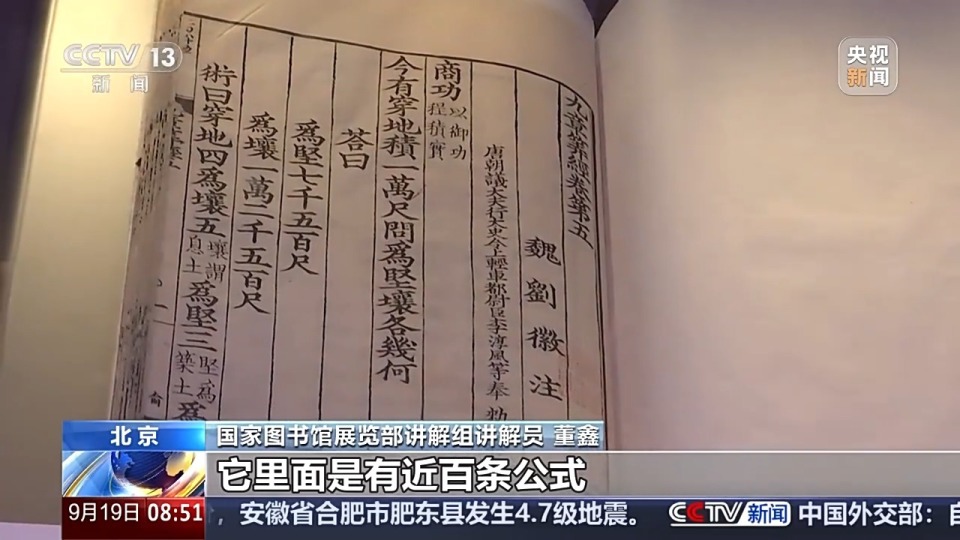 CCTV 13
新闻
央视
新闻
九章算經卷第五
魏劉徽注
唐朝議大夫行太史令上輕車都尉臣李淳風等奉勑
商功以御功程積實
今有穿地積一萬尺問爲堅壤各幾何
荅曰
爲堅七千五百尺
爲壤一萬二千五百尺
術曰穿地四爲壤五壤謂息土爲堅三堅爲築土爲
北京
国家图书馆展览部讲解组讲解员 董鑫
它里面是有近百条公式
9月19日 08:51
，安徽省合肥市肥东县发生4.7级地震。 CCTV新闻 中国外交部：